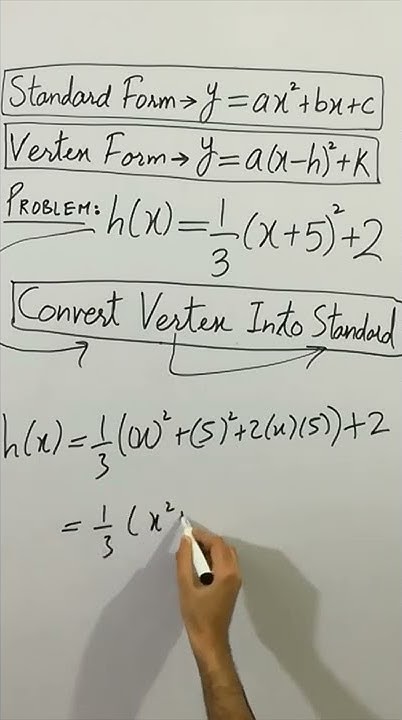 Standard Form → y = ax² + bx + c
Vertex Form → y = a(x-h)² + K
PROBLEM: h(x) = 1/3 (x+5)² + 2
Convert Vertex Into Standard
h(x) = 1/3 ((x)² + (5)² + 2(x)(5)) + 2
= 1/3 (x²